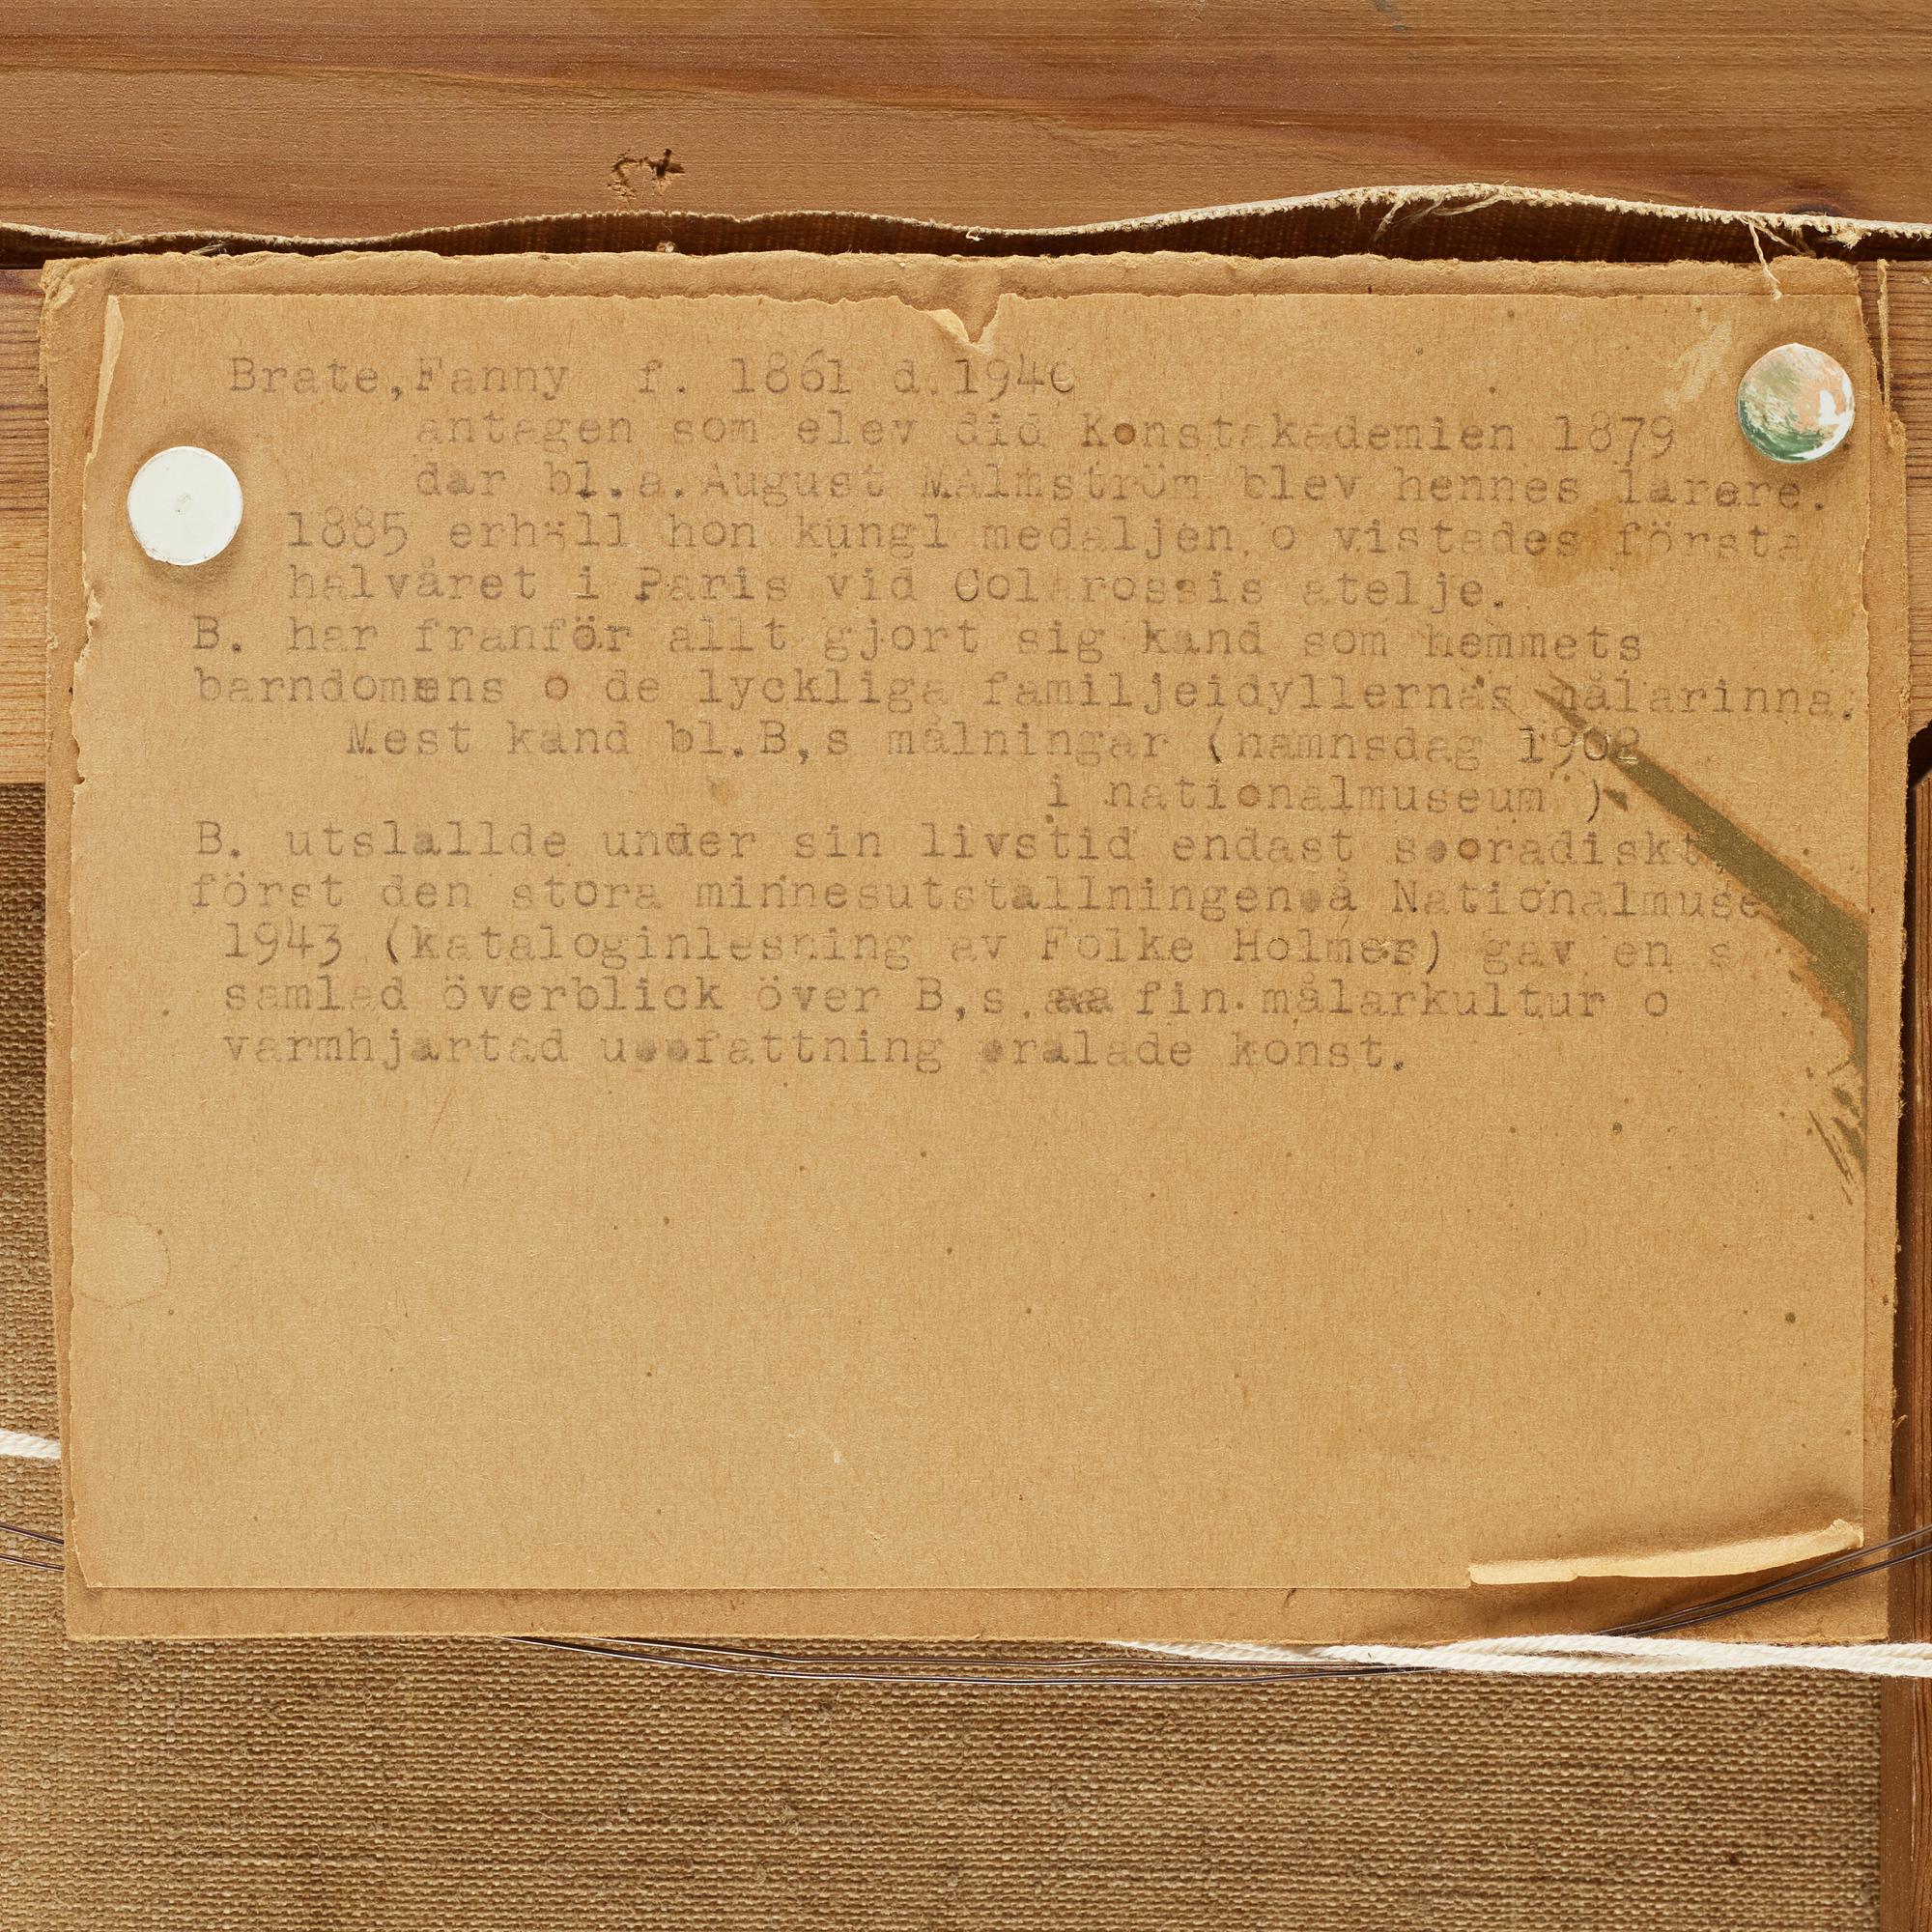 Brate,Fanny f. 1861 d.1940
antagen som elev did Konstakademien 1879
dar bl.a.August Malmström blev hennes larare.
1885 erhäll hon kungl medaljen o vistades första
halvåret i Paris vid Colarossis atelje.
B. har franför allt gjort sig kand som hemmets
barndomens o de lyckliga familjeidyllernas målarinna.
Mest kand bl.B,s målningar (namnsdag 1902
i nationalmuseum )
B. utslallde under sin livstid endast sporadiskt
först den stora minnesutstallningenpå Nationalmuse
1943 (kataloginlesning av Folke Holmer) gav en s
samlad överblick över B,s fin målarkultur o
varmhjartad uppfattning pralade konst.